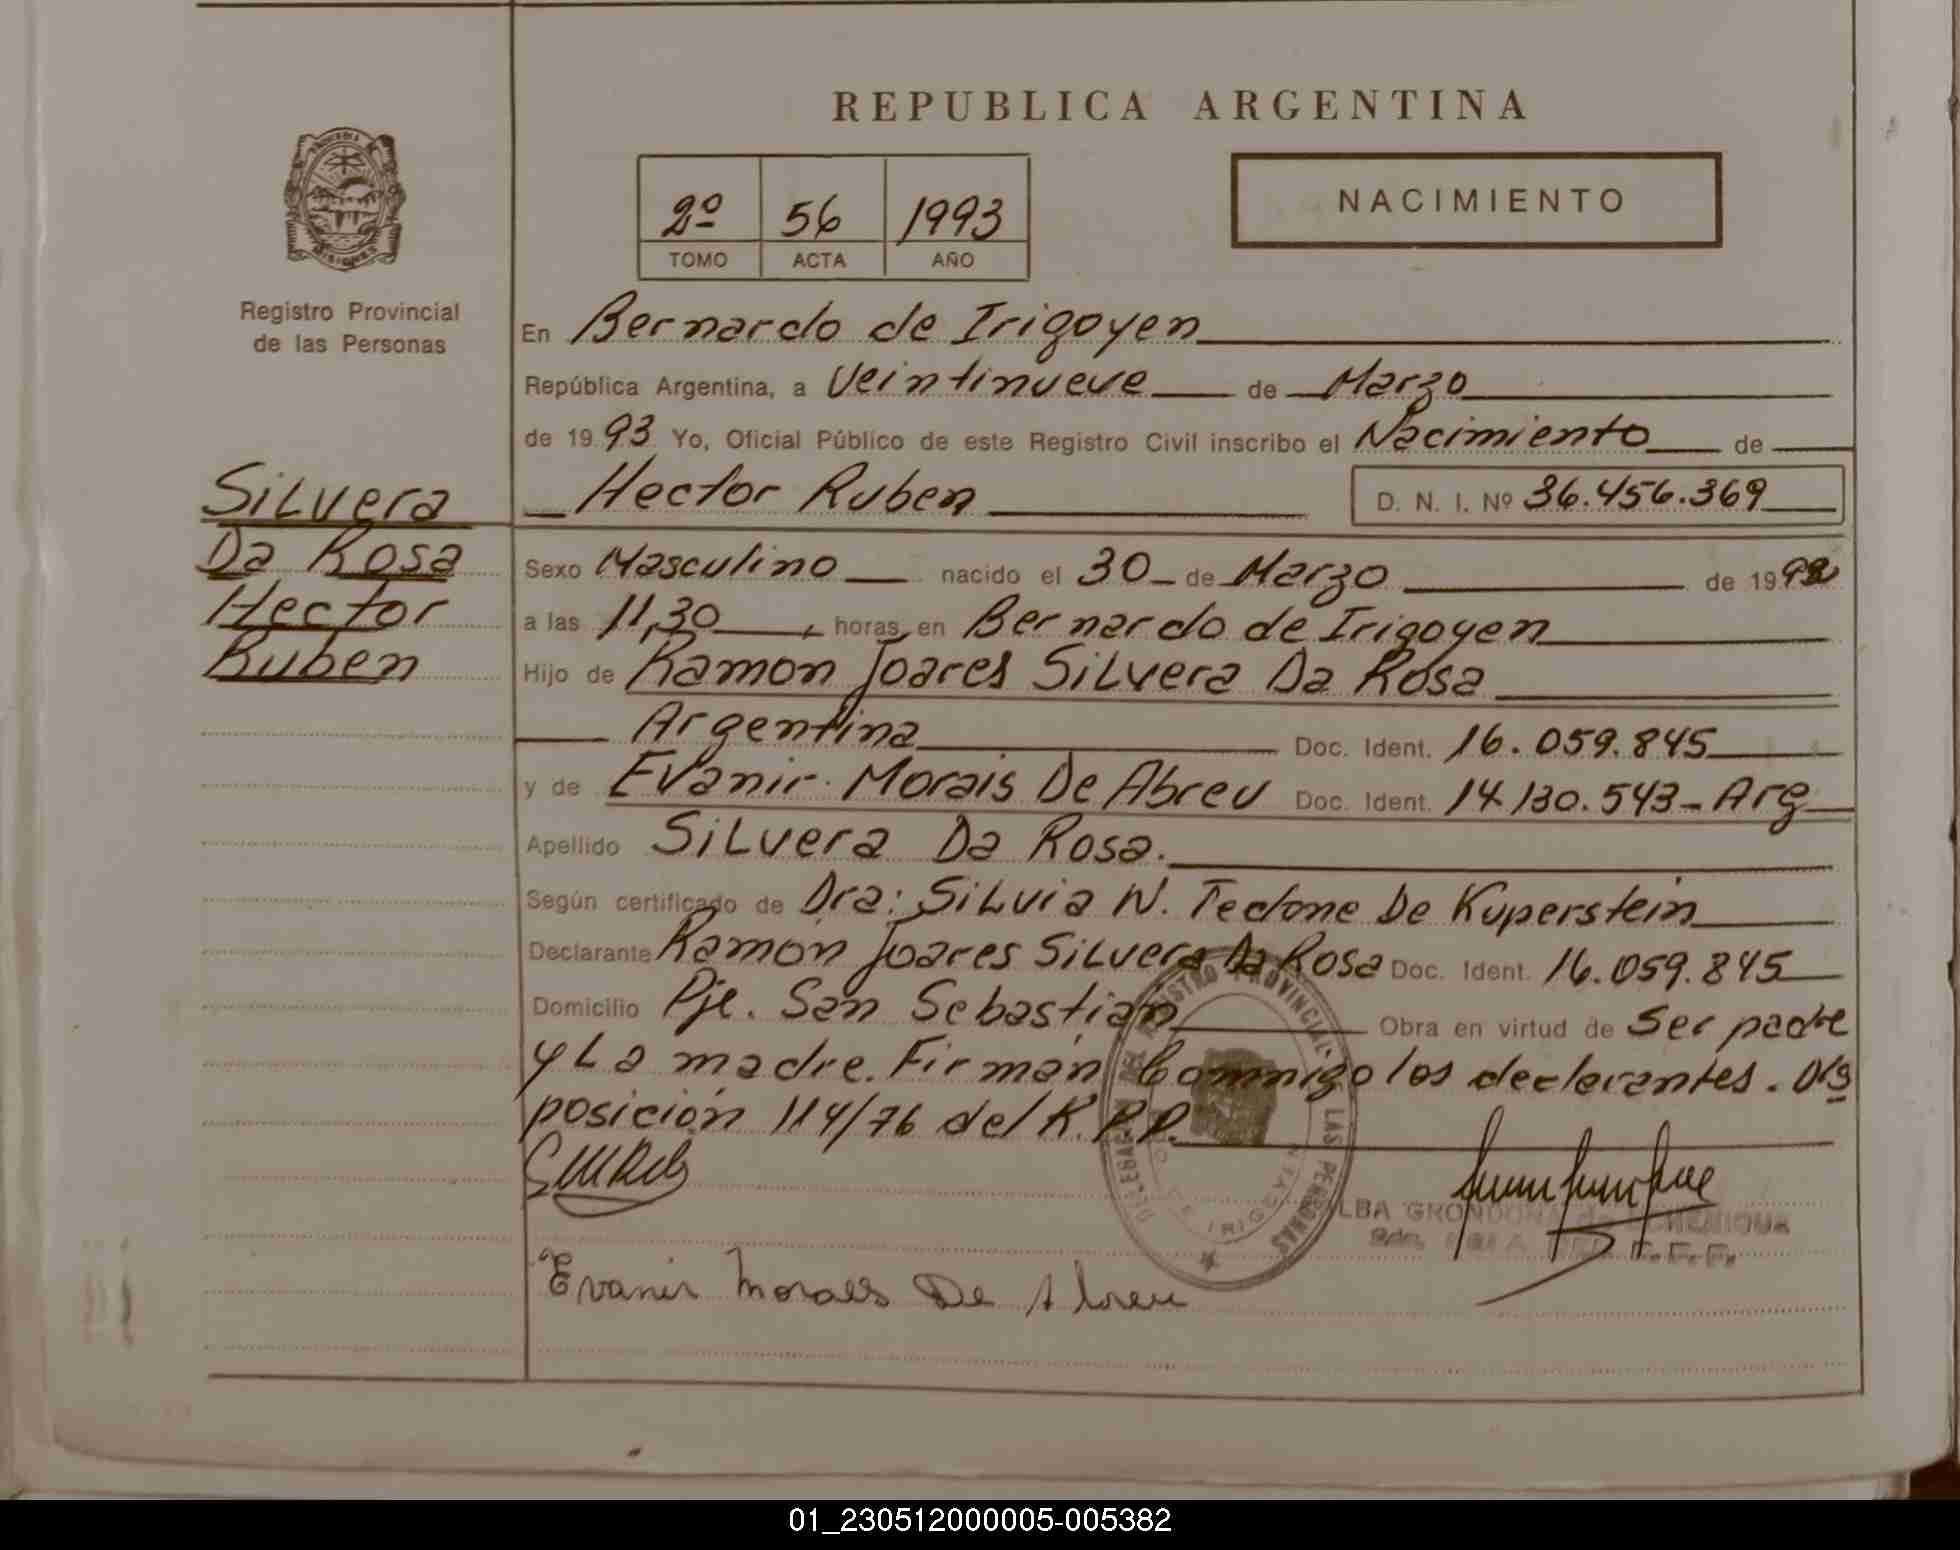 REPUBLICA ARGENTINA
2º 56 1993
TOMO ACTA AÑO
NACIMIENTO
Registro Provincial
de las Personas
Silvera
Da Rosa
Hector
Ruben
En Bernardo de Irigoyen
República Argentina, a Veintinueve de Marzo
de 1993 Yo, Oficial Público de este Registro Civil inscribo el Nacimiento de
Hector Ruben D. N. I. Nº 36.456.369
Sexo Masculino nacido el 30 de Marzo de 1992
a las 11,30 horas, en Bernardo de Irigoyen
Hijo de Ramon Joares Silvera Da Rosa
Argentina Doc. Ident. 16.059.845
y de Evanir Morais De Abreu Doc. Ident. 14.130.543 - Arg
Apellido Silvera Da Rosa.
Según certificado de Dra: Silvia N. Tedone De Kuperstein
Declarante Ramón Joares Silvera Da Rosa Doc. Ident. 16.059.845
Domicilio Pje. San Sebastián Obra en virtud de Ser padre
y La madre. Firman Conmigo los declarantes. Dis
posición 114/76 del R.P.P.
DELEGACION DEL REGISTRO PROVINCIAL DE LAS PERSONAS
DE IRIGOYEN
ALBA GRONDONA de
Evanir Moraes De Abreu
01_230512000005-005382